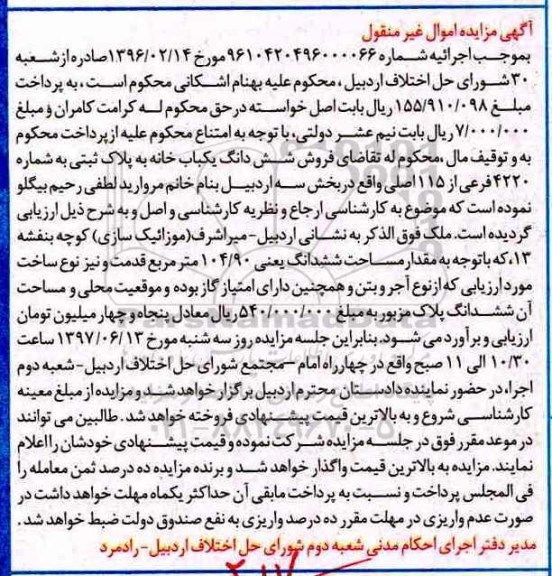 آگهی مزایده اموال غیر منقول
بموجب اجرائیه شماره ۹۶۱۰۴۲۰۴۹۶۰۰۰۰۶۶ مورخ ۱۳۹۶/۰۲/۱۴ صادره از شعبه
۳۰ شورای حل اختلاف اردبیل ، محکوم علیه بهنام اشکانی محکوم است ، به پرداخت
مبلغ ۱۵۵/۹۱۰/۰۹۸ ریال بابت اصل خواسته در حق محکوم له کرامت کامران و مبلغ
۷/۰۰۰/۰۰۰ ریال بابت نیم عشر دولتی، با توجه به امتناع محکوم علیه از پرداخت محکوم
به و توقیف مال ،محکوم له تقاضای فروش شش دانگ یکباب خانه به پلاک ثبتی به شماره
۴۲۲۰ فرعی از ۱۱۵ اصلی واقع در بخش سه اردبیل بنام خانم مروارید لطفی رحیم بیگلو
نموده است که موضوع به کارشناسی ارجاع و نظریه کارشناسی و اصل و به شرح ذیل ارزیابی
گردیده است. ملک فوق الذکر به نشانی اردبیل-میراشرف(موزائیک سازی) کوچه بنفشه
۱۳،که با توجه به مقدار مساحت ششدانگ یعنی ۱۰۴/۹۰ متر مربع قدمت و نیز نوع ساخت
مورد ارزیابی که از نوع آجر و بتن و همچنین دارای امتیاز گاز بوده و موقعیت محلی و مساحت
آن ششدانگ پلاک مزبور به مبلغ ۵۴۰/۰۰۰/۰۰۰ ریال معادل پنجاه و چهار میلیون تومان
ارزیابی و برآورد می شود. بنابراین جلسه مزایده روز سه شنبه مورخ ۱۳۹۷/۰۶/۱۳ ساعت
۱۰/۳۰ الی ۱۱ صبح واقع در چهارراه امام-مجتمع شورای حل اختلاف اردبیل-شعبه دوم
اجرا، در حضور نماینده دادستان محترم اردبیل برگزار خواهد شد و مزایده از مبلغ معینه
کارشناسی شروع و به بالاترین قیمت پیشنهادی فروخته خواهد شد. طالبین می توانند
در موعد مقرر فوق در جلسه مزایده شرکت نموده و قیمت پیشنهادی خودشان را اعلام
نمایند. مزایده به بالاترین قیمت واگذار خواهد شد و برنده مزایده ده درصد ثمن معامله را
فی المجلس پرداخت و نسبت به پرداخت مابقی آن حداکثر یکماه مهلت خواهد داشت در
صورت عدم واریزی در مهلت مقرر ده درصد واریزی به نفع صندوق دولت ضبط خواهد شد .
مدیر دفتر اجرای احکام مدنی شعبه دوم شورای حل اختلاف اردبیل- رادمرد